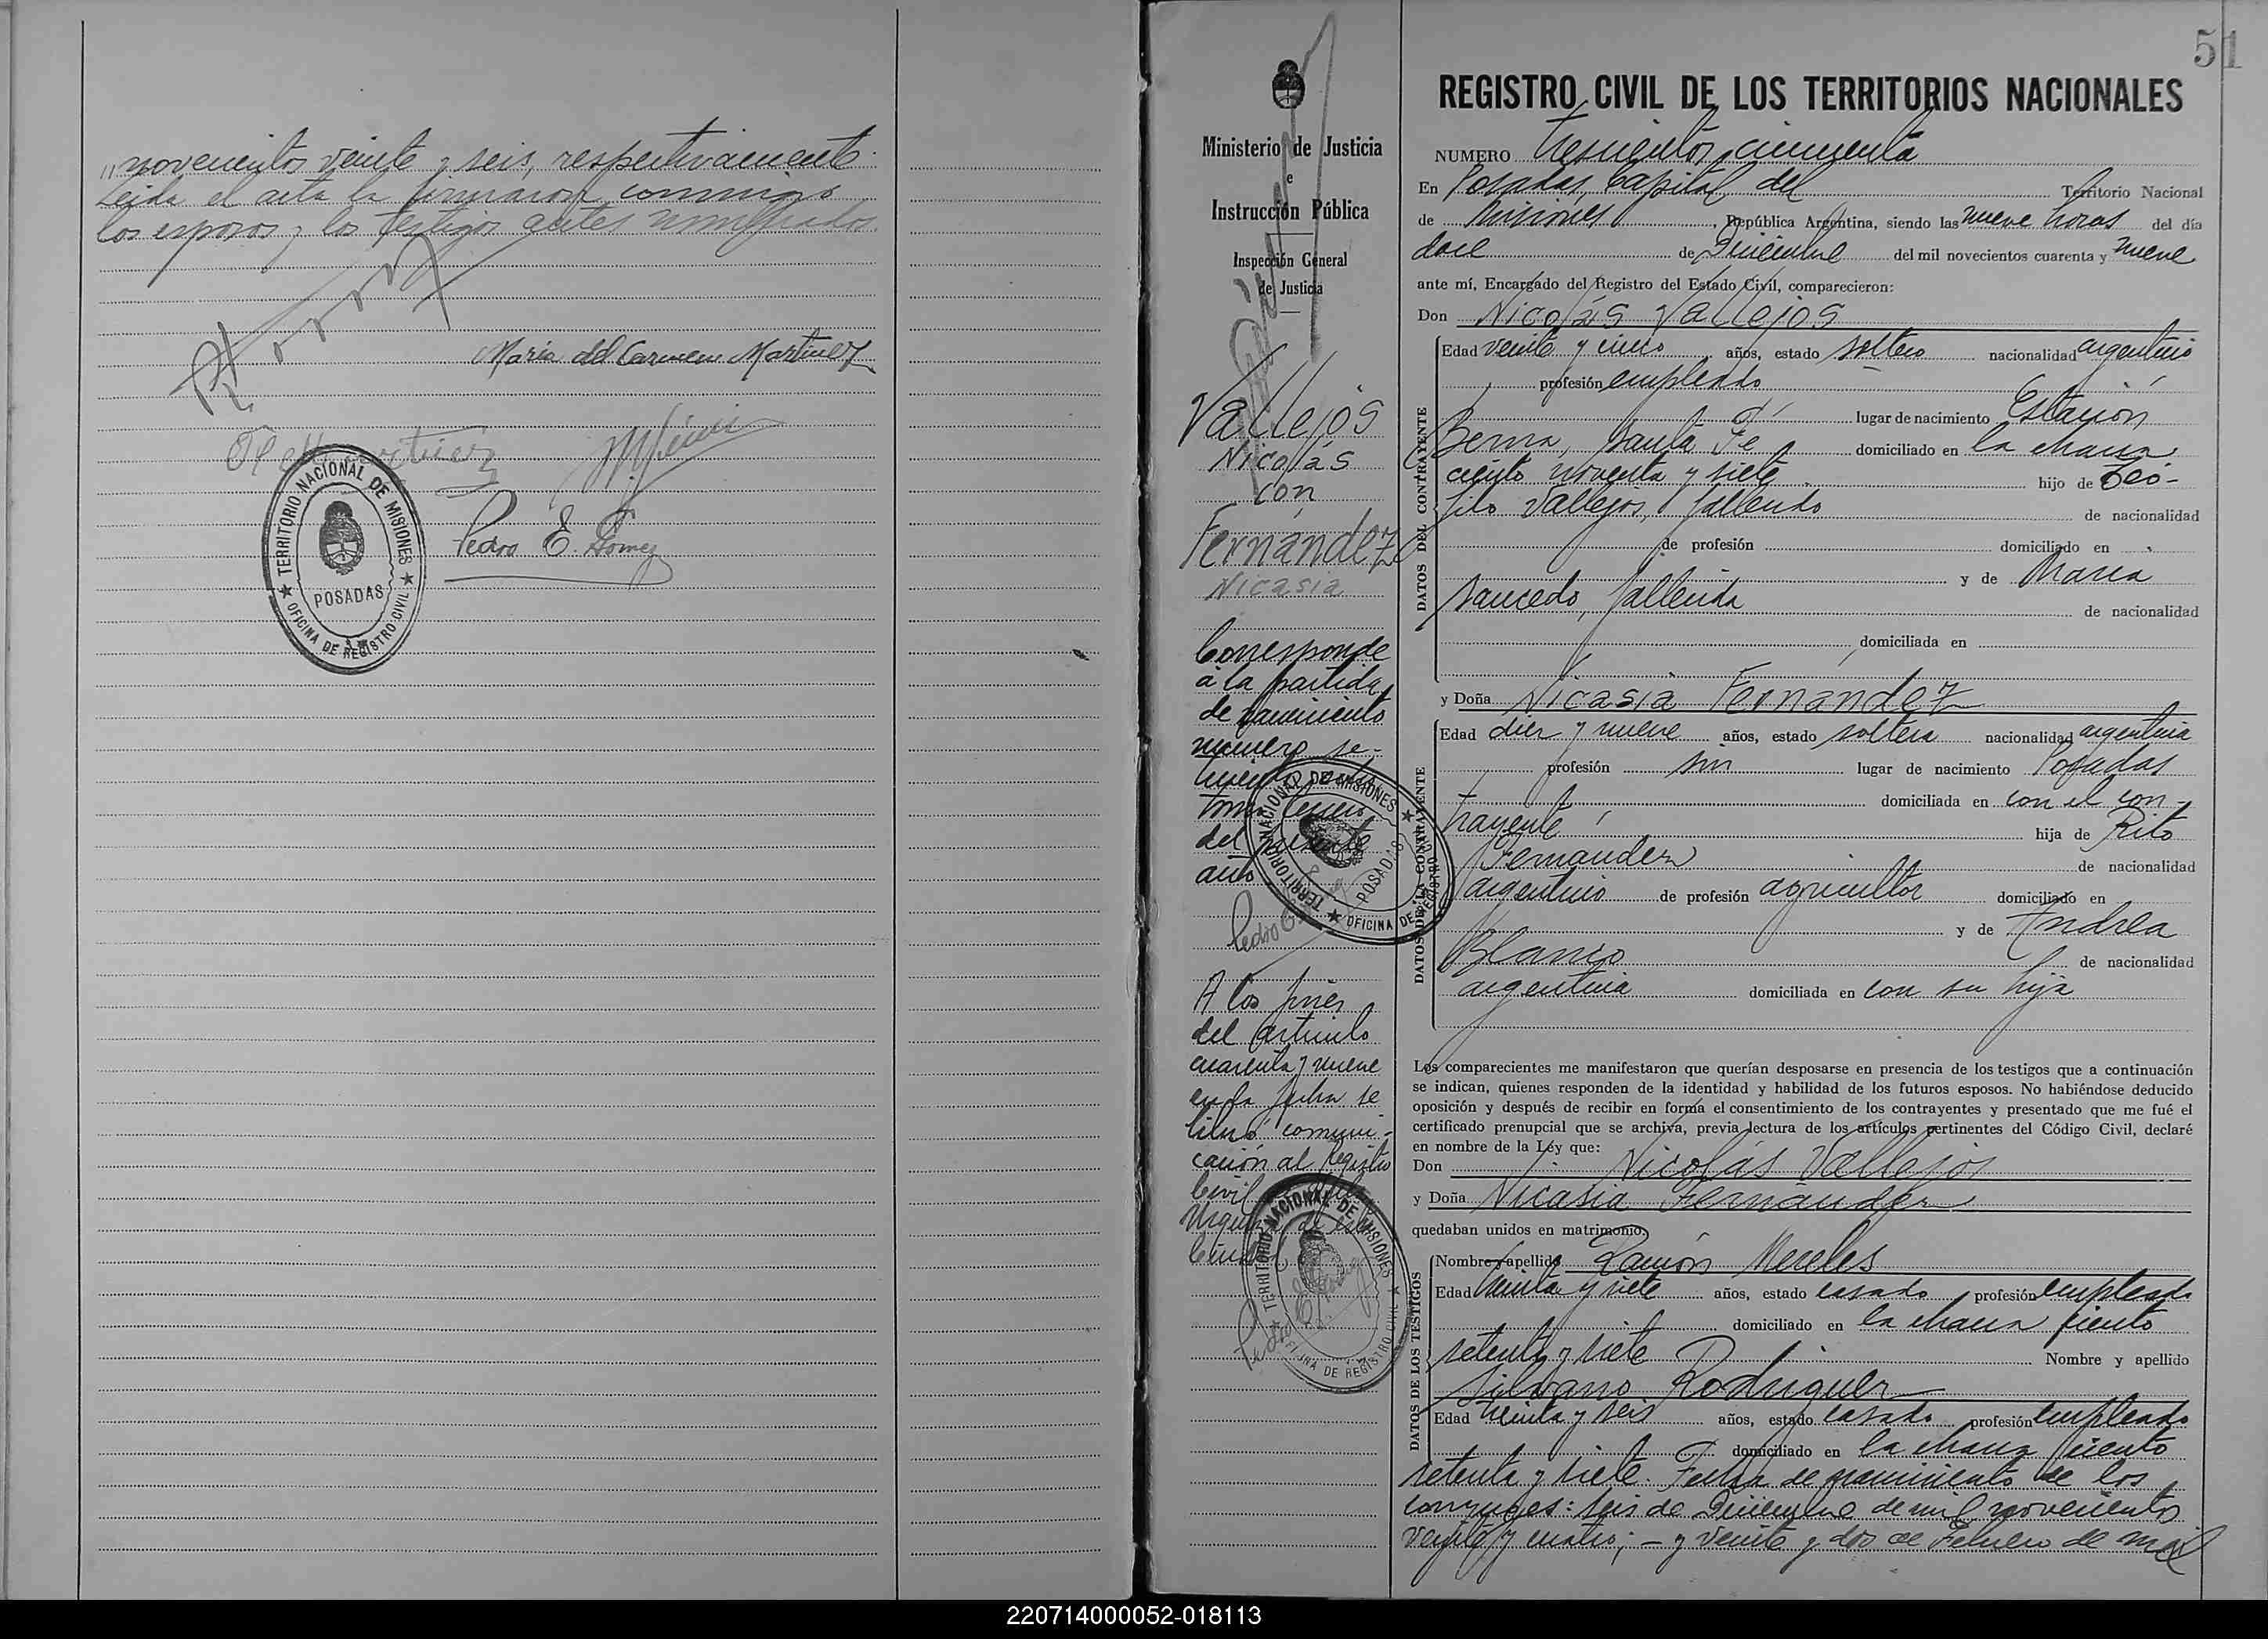 novecientos veinte y seis, respectivamente.
Leida el acta la firmaron conmigo
los esposos y los testigos antes nombrados.
Maria del Carmen Martinez
Pedro E. Gomez
TERRITORIO NACIONAL DE MISIONES
POSADAS
OFICINA DE REGISTRO CIVIL
51
Ministerio de Justicia
e
Instrucción Pública
Inspección General
de Justicia
Vallejos
Nicolás
con
Fernández
Nicasia
Corresponde
a la partida
de nacimiento
número se-
tomo tercero
del presente
año
Pedro E.
TERRITORIO NACIONAL DE MISIONES
POSADAS
OFICINA DE REGISTRO
A los fines
del artículo
cuarenta y nueve
en la fecha se
libró comuni-
cación al Registro
Civil
Urquiza de
Pedro E. Gomez
TERRITORIO NACIONAL DE MISIONES
OFICINA DE REGISTRO CIVIL
REGISTRO CIVIL DE LOS TERRITORIOS NACIONALES
NUMERO trescientos cincuenta
En Posadas, Capital del Territorio Nacional
de Misiones, República Argentina, siendo las nueve horas del día
doce de Diciembre del mil novecientos cuarenta y nueve
ante mí, Encargado del Registro del Estado Civil, comparecieron:
Don Nicolás Vallejos
DATOS DEL CONTRAYENTE
Edad veinte y cinco años, estado soltero nacionalidad argentino
profesión empleado
lugar de nacimiento Estación
Berna, Santa Fé domiciliado en la chacra
ciento noventa y siete hijo de Teó-
filo Vallejos, fallecido de nacionalidad
de profesión domiciliado en
y de María
Saucedo, fallecida de nacionalidad
domiciliada en
y Doña Nicasia Fernández
DATOS DE LA CONTRAYENTE
Edad diez y nueve años, estado soltera nacionalidad argentina
profesión sin lugar de nacimiento Posadas
domiciliada en con el con-
trayente hija de Rito
Fernandez de nacionalidad
argentino de profesión agricultor domiciliado en
y de Andrea
Blanco de nacionalidad
argentina domiciliada en con su hija
Los comparecientes me manifestaron que querían desposarse en presencia de los testigos que a continuación
se indican, quienes responden de la identidad y habilidad de los futuros esposos. No habiéndose deducido
oposición y después de recibir en forma el consentimiento de los contrayentes y presentado que me fué el
certificado prenupcial que se archiva, previa lectura de los artículos pertinentes del Código Civil, declaré
en nombre de la Ley que:
Don Nicolás Vallejos
y Doña Nicasia Fernández
quedaban unidos en matrimonio.
DATOS DE LOS TESTIGOS
Nombre y apellido Ramón Mereles
Edad treinta y siete años, estado casado profesión empleado
domiciliado en la chacra ciento
setenta y siete Nombre y apellido
Silvano Rodriguez
Edad treinta y seis años, estado casado profesión empleado
domiciliado en la chacra ciento
setenta y siete. Fecha de nacimiento de los
conyuges: seis de Diciembre de mil novecientos
veinte y cuatro; - y veinte y dos de Febrero de mil
220714000052-018113